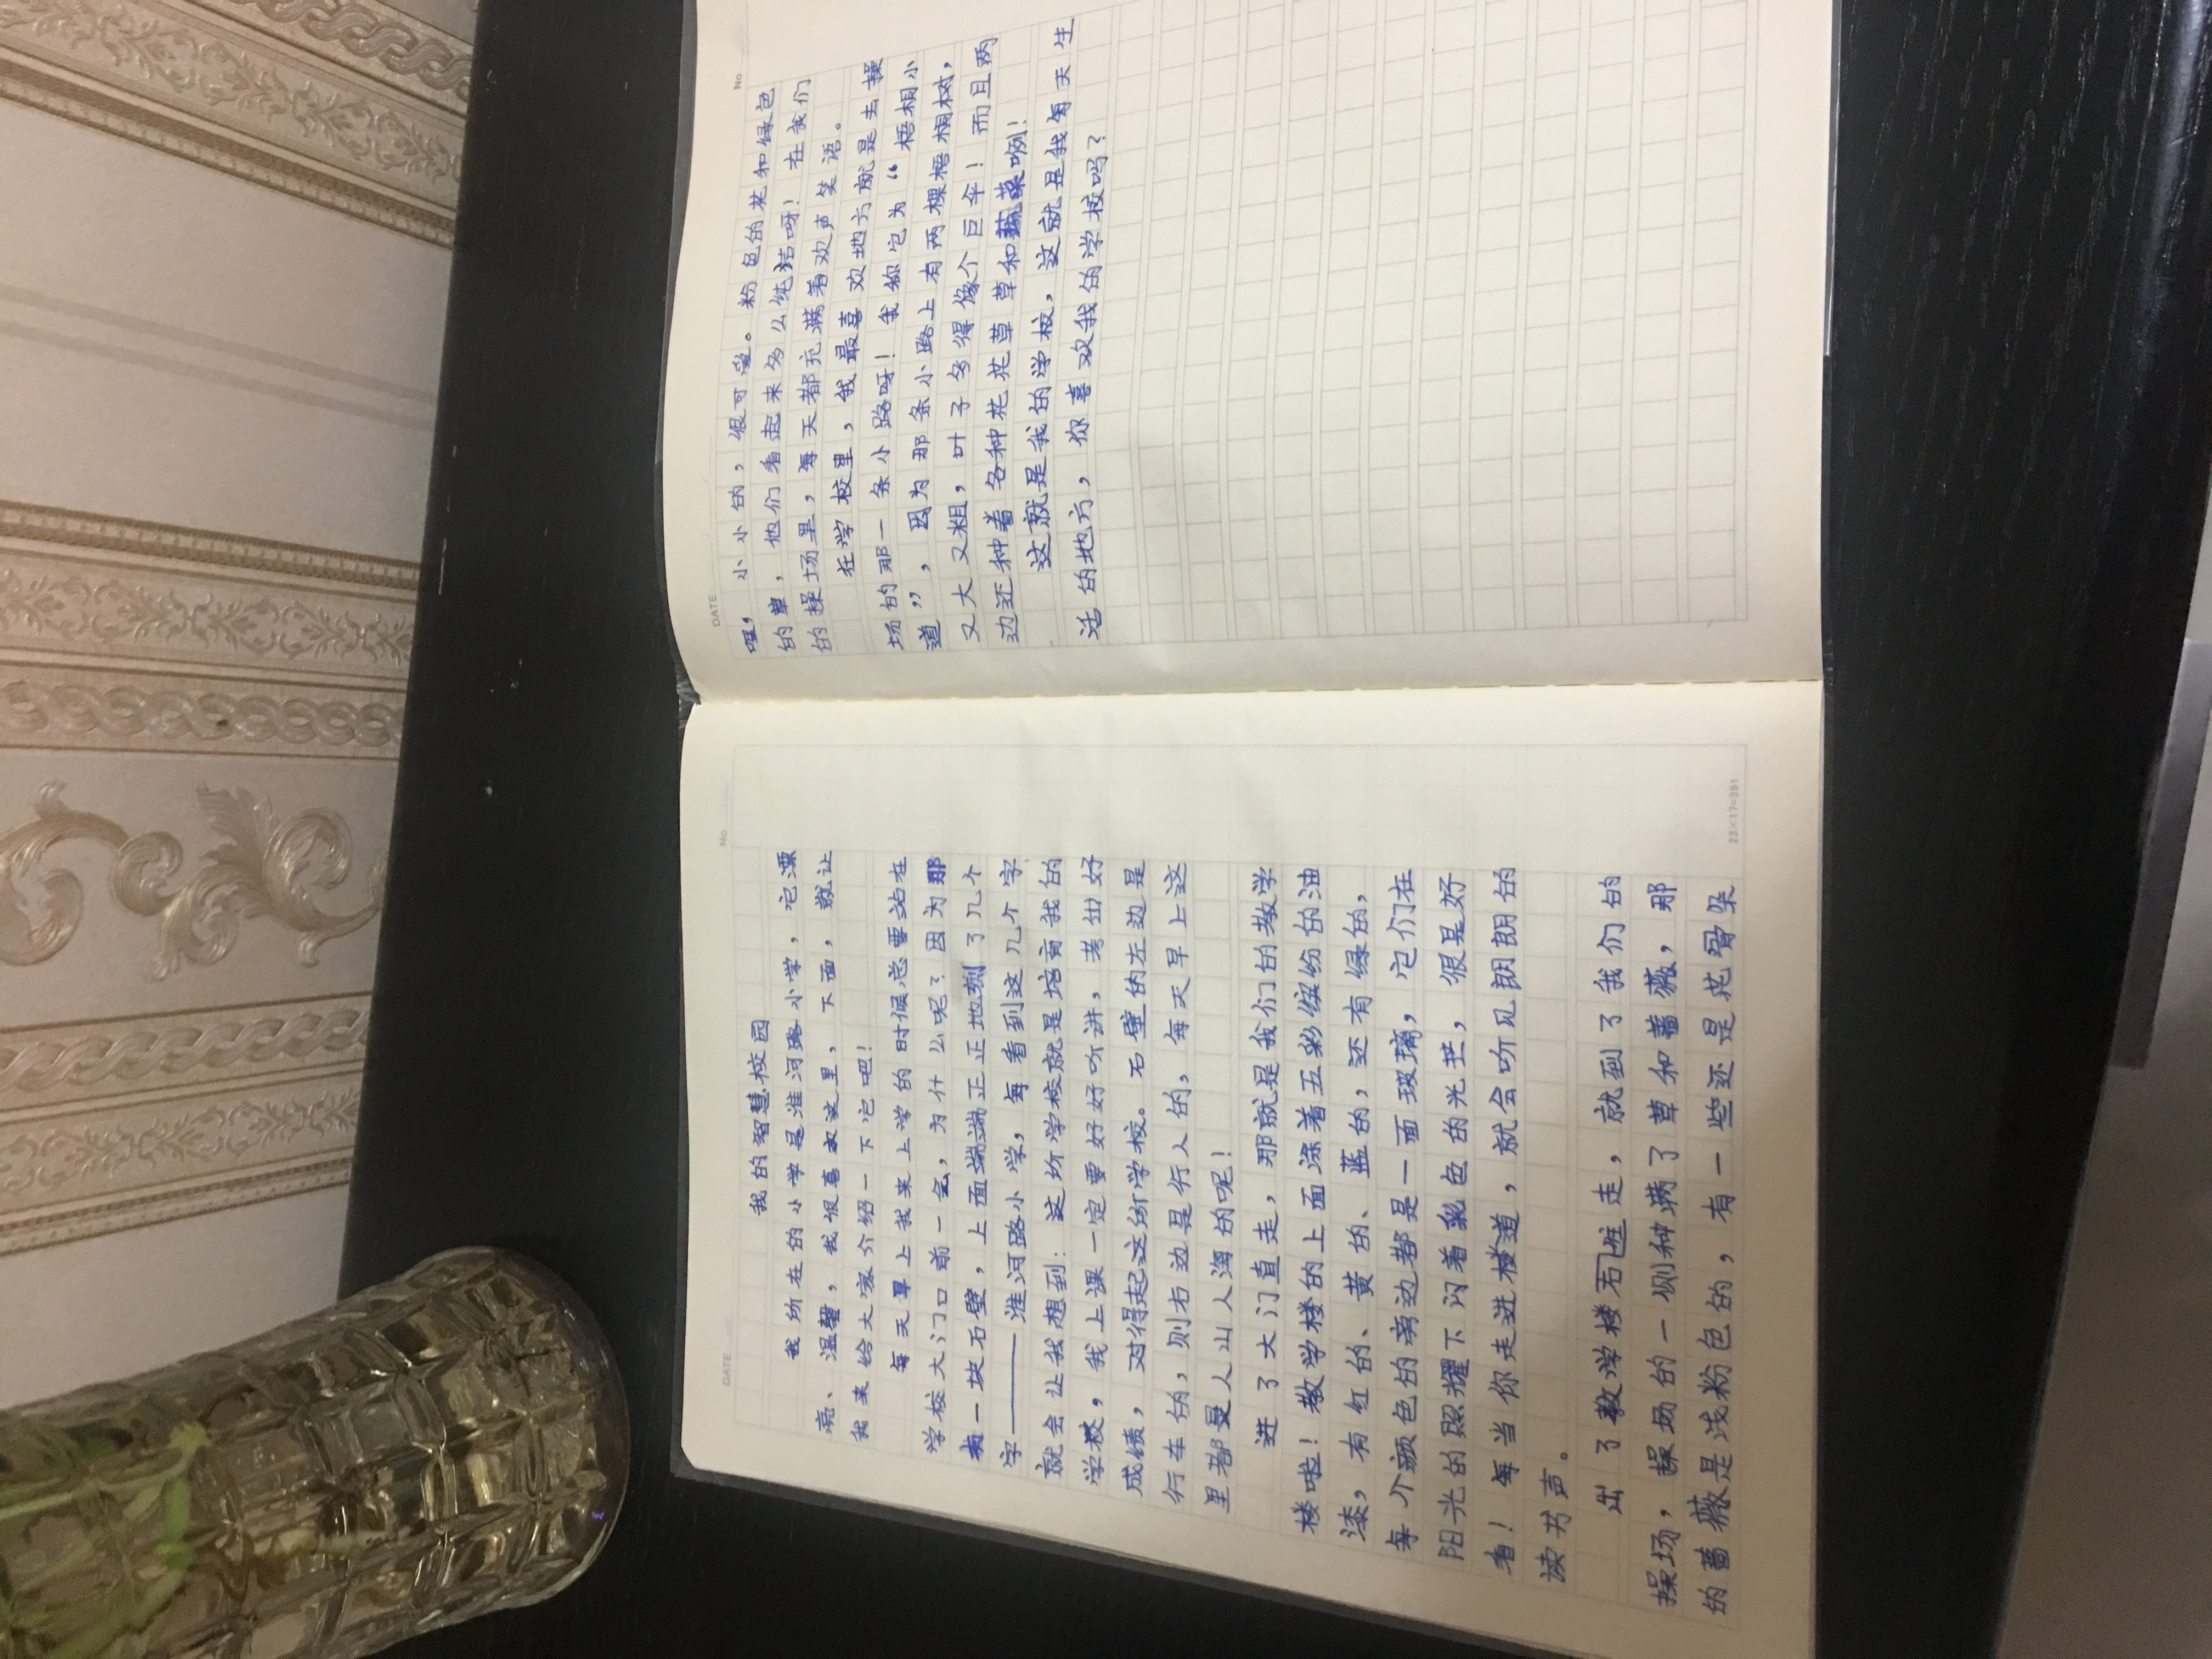 DATE
No.
我的智慧校园
我所在的小学是淮河路小学，它漂
亮、温馨，我很喜欢这里，下面，就让
我来给大家介绍一下它吧！
每天早上我来上学的时候总要站在
学校大门口前一会，为什么呢？因为那
有一块石壁，上面端端正正地刻了几个
字——淮河路小学，每看到这几个字
就会让我想到：这所学校就是培育我的
学校，我上课一定要好好听讲，考出好
成绩，对得起这所学校。石壁的左边是
行车的，则右边是行人的，每天早上这
里都是人山人海的呢！
进了大门直走，那就是我们的教学
楼啦！教学楼的上面涂着五彩缤纷的油
漆，有红的、黄的、蓝的，还有绿的，
每个颜色的旁边都是一面玻璃，它们在
阳光的照耀下闪着彩色的光芒，很是好
看！每当你走进楼道，就会听见朗朗的
读书声。
出了教学楼右走，就到了我们的
操场，操场的一侧种满了草和蔷薇，那
的蔷薇是浅粉色的，有一些还是花骨朵
23×17=391
DATE
No.
呢，小小的，很可爱。粉色的花和绿色
的草，他们看起来多么纯洁呀！在我们
的操场里，每天都充满着欢声笑语。
在学校里，我最喜欢地方就是去操
场的那一条小路呀！我称它为“梧桐小
道”，因为那条小路上有两棵梧桐树，
又大又粗，叶子多得像个巨伞！而且两
边还种着各种花花草草和蔬菜咧！
这就是我的学校，这就是我每天生
活的地方，你喜欢我的学校吗？